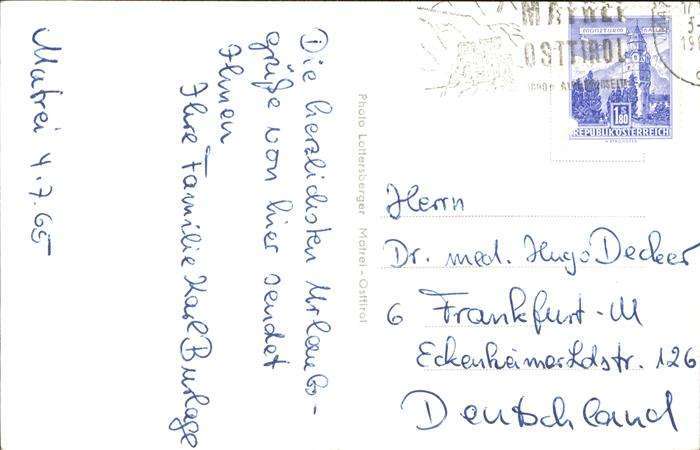 Matrei 4.7.65
Die herzlichsten Urlaubs-
grüße von hier sendet
Ihnen
Ihre Familie Karl Burlage
Photo Lottersberger Matrei-Osttirol
MATREI
OSTTIROL
MÜNZTURM HALL I.T.
1.80
REPUBLIK ÖSTERREICH
Herrn
Dr. med. Hugo Decker
6 Frankfurt-M
Eckenheimer Ldstr. 126
Deutschland